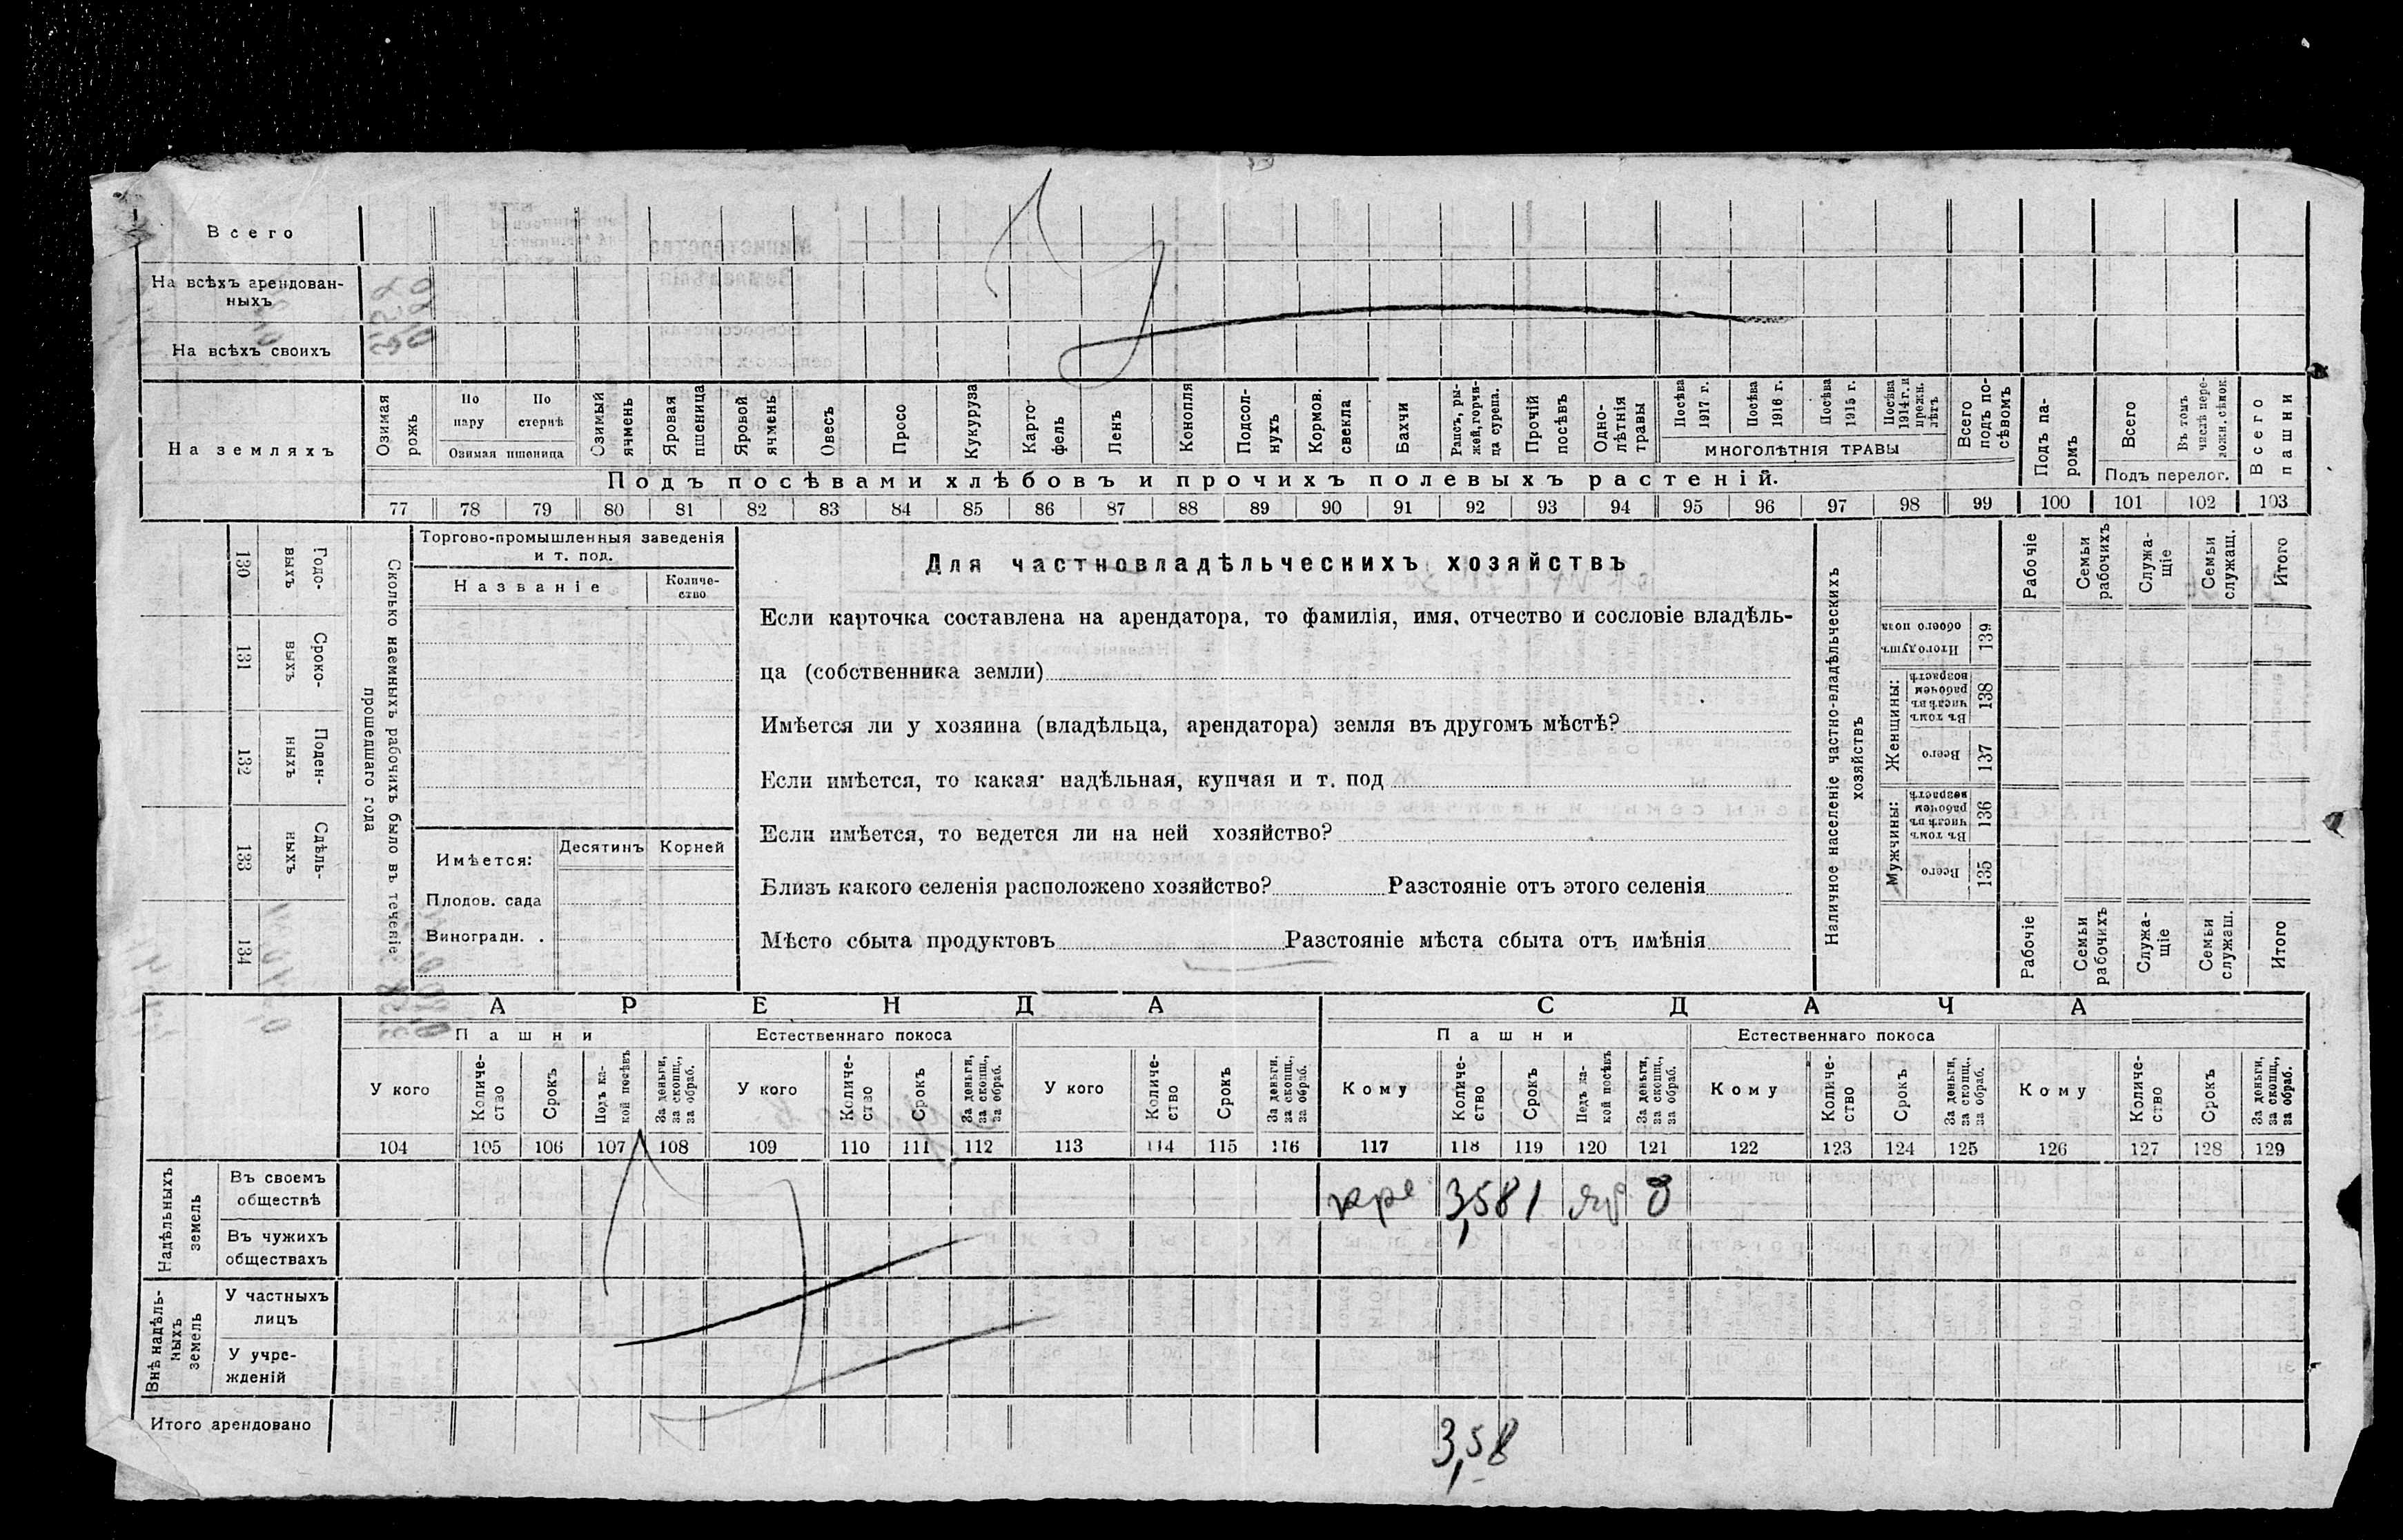 Всего
На всѣхъ арендован-
ныхъ
На всѣхъ своихъ
На земляхъ
Озимая рожь
По пару
По стернѣ
Озимая пшеница
Озимый ячмень
Яровая пшеница
Яровой ячмень
Овесъ
Просо
Кукуруза
Карто-фель
Ленъ
Конопля
Подсол-нухъ
Кормов. свекла
Бахчи
Рапсъ, ры-жей, горчи-ца сурепа.
Прочій посѣвъ
Одно-лѣтнія травы
Посѣва 1917 г.
Посѣва 1916 г.
Посѣва 1915 г.
Посѣва 1914 г. и прежн. лѣтъ
МНОГОЛѢТНІЯ ТРАВЫ
Всего подъ по-сѣвомъ
Подъ па-ромъ
Всего
Въ томъ числѣ пере-ложн. сѣнок.
Подъ перелог.
Всего пашни
Подъ посѣвами хлѣбовъ и прочихъ полевыхъ растеній.
77 78 79 80 81 82 83 84 85 86 87 88 89 90 91 92 93 94 95 96 97 98 99 100 101 102 103
Годо-выхъ 130
Сроко-выхъ 131
Поден-ныхъ 132
Сдѣль-ныхъ 133
134
Сколько наемныхъ рабочихъ было въ теченіе
прошедшаго года
Торгово-промышленныя заведенія
и т. под.
Названіе
Количе-ство
Имѣется:
Десятинъ Корней
Плодов. сада
Виноградн. .
Для частновладѣльческихъ хозяйствъ
Если карточка составлена на арендатора, то фамилія, имя, отчество и сословіе владѣль-
ца (собственника земли)
Имѣется ли у хозяина (владѣльца, арендатора) земля въ другомъ мѣстѣ?
Если имѣется, то какая· надѣльная, купчая и т. под
Если имѣется, то ведется ли на ней хозяйство?
Близъ какого селенія расположено хозяйство? Разстояніе отъ этого селенія
Мѣсто сбыта продуктовъ Разстояніе мѣста сбыта отъ имѣнія
Наличное населеніе частно-владѣльческихъ
хозяйствъ
Рабочіе
Семьи рабочихъ
Служа-щіе
Семьи служащ.
Итого
Итого душъ обоего пола 139
Женщины:
Въ томъ числѣ въ рабочем возрастѣ 138
Всего 137
Мужчины:
Въ томъ числѣ въ рабочем возрастѣ 136
Всего 135
Рабочіе
Семьи рабочихъ
Служа-щіе
Семьи служащ.
Итого
АРЕНДА СДАЧА
Пашни Естественнаго покоса Пашни Естественнаго покоса
У кого
Количе-ство
Срокъ
Подъ ка-кой посѣвъ
За деньги, за скопщ., за обраб.
У кого
Количе-ство
Срокъ
За деньги, за скопщ., за обраб.
У кого
Количе-ство
Срокъ
За деньги, за скопщ., за обраб.
Кому
Количе-ство
Срокъ
Подъ ка-кой посѣвъ
За деньги, за скопщ., за обраб.
Кому
Количе-ство
Срокъ
За деньги, за скопщ., за обраб.
Кому
Количе-ство
Срокъ
За деньги, за скопщ., за обраб.
104 105 106 107 108 109 110 111 112 113 114 115 116 117 118 119 120 121 122 123 124 125 126 127 128 129
Надѣльныхъ земель
Въ своемъ
обществѣ
кре 3,58 1
Въ чужихъ
обществахъ
Внѣ надѣль-ныхъ земель
У частныхъ
лицъ
У учре-
жденій
Итого арендовано
3,58